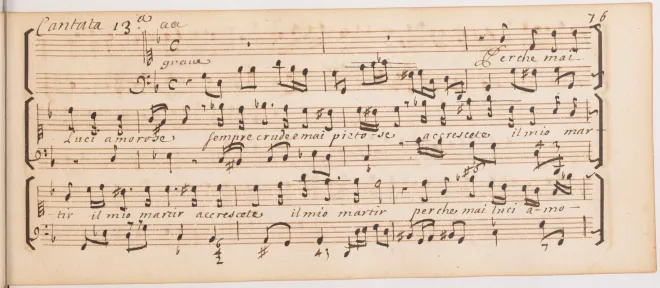 Cantata 13ª
76
grave
Perche mai
Luci amorose sempre crude e mai pieto-se accrescete il mio mar-
tir il mio martir accrescete il mio martir perche mai luci a-mo-